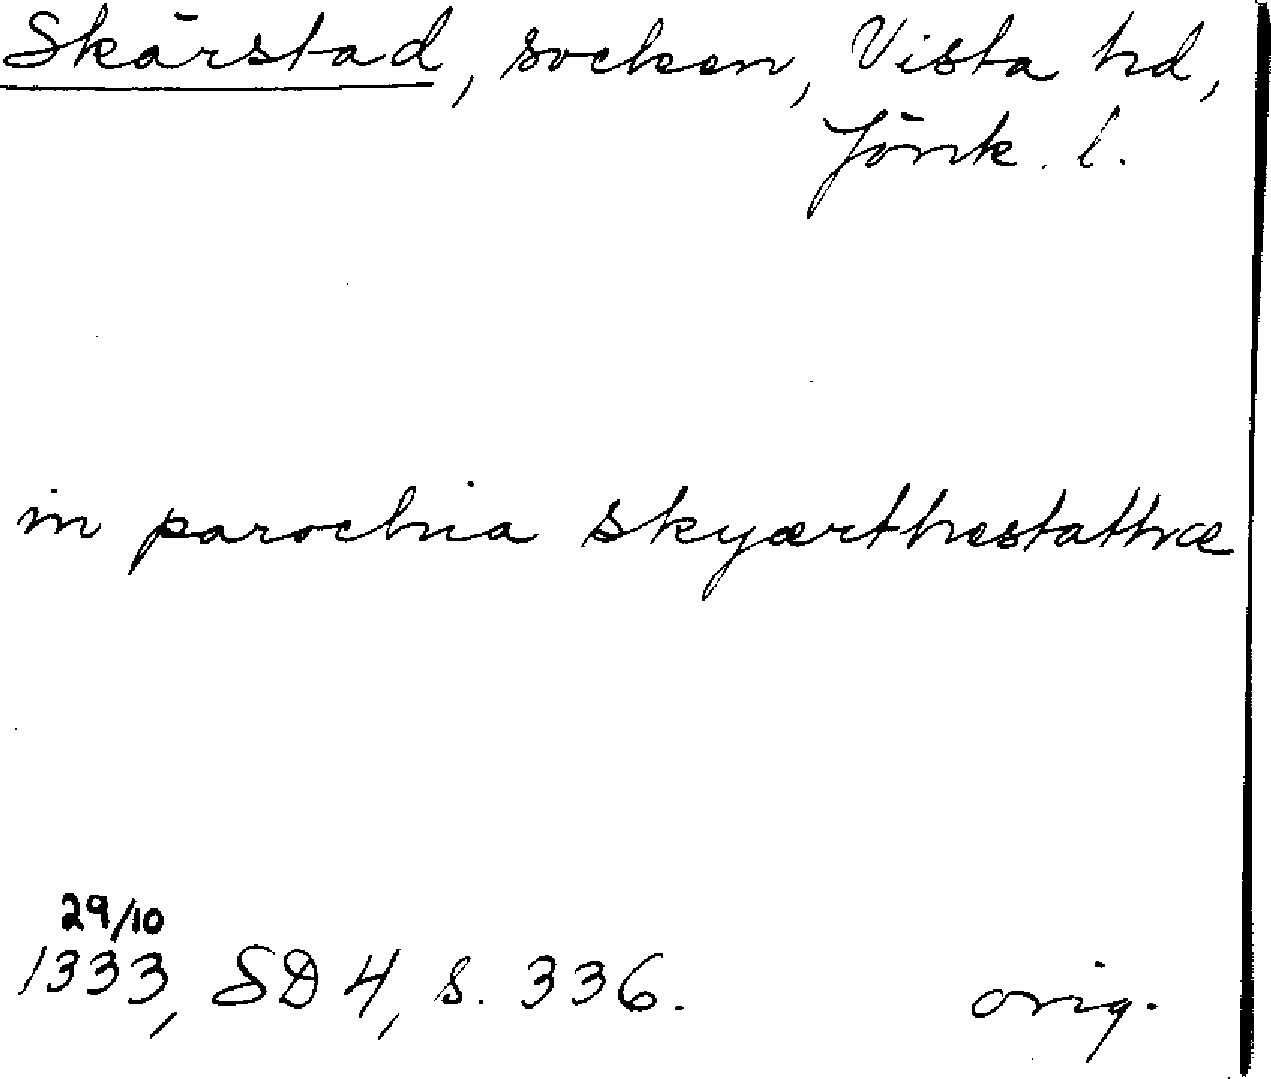 Skärstad, socken, Vista hd,
Jönk. l.
in parochia skyærthestathæ
29/10
1333, SD 4, s. 336.
orig.